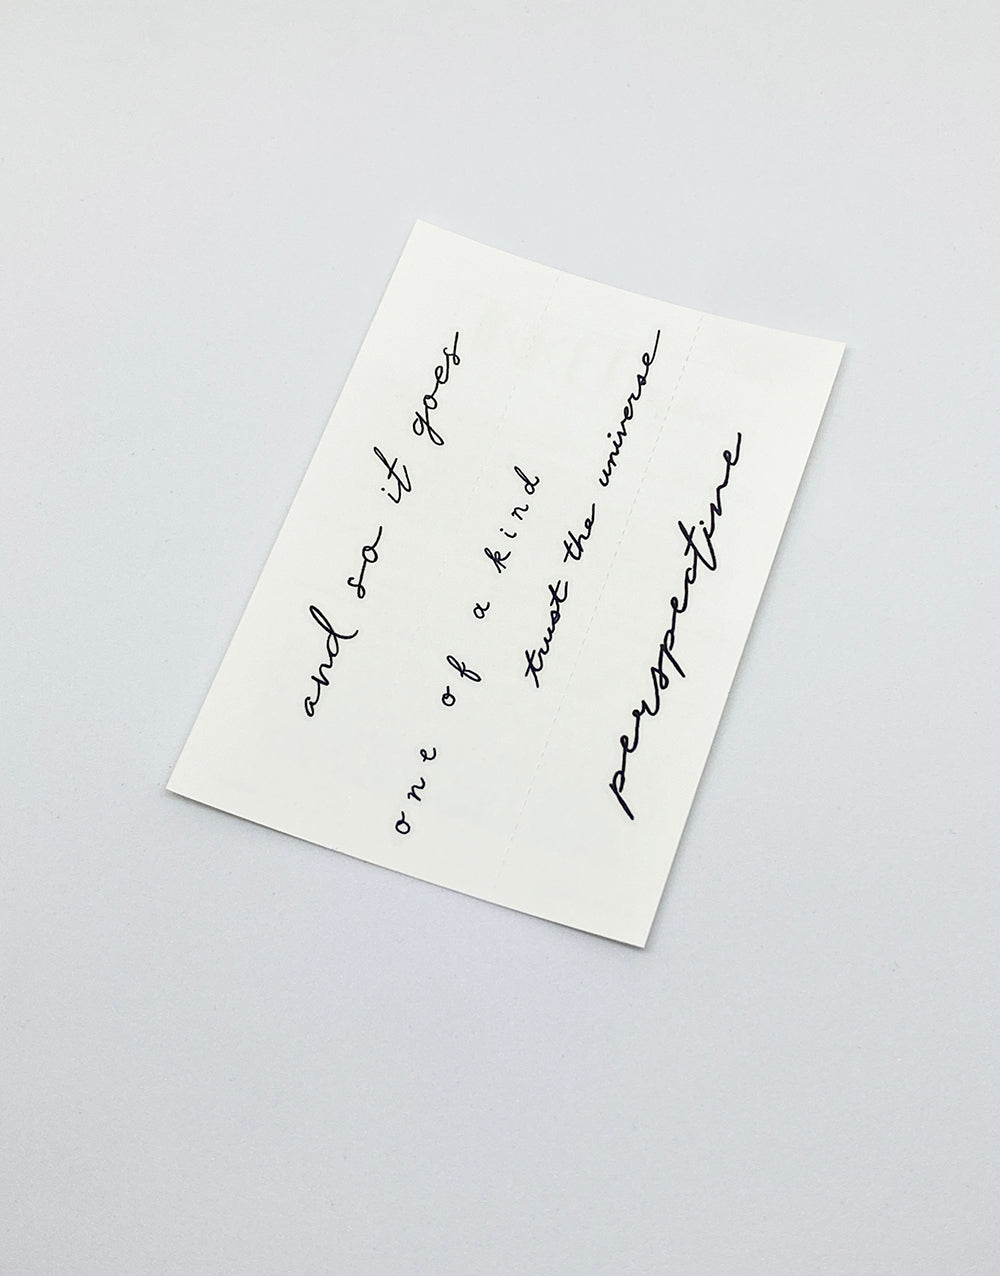 and so it goes
one of a kind
trust the universe
perspective